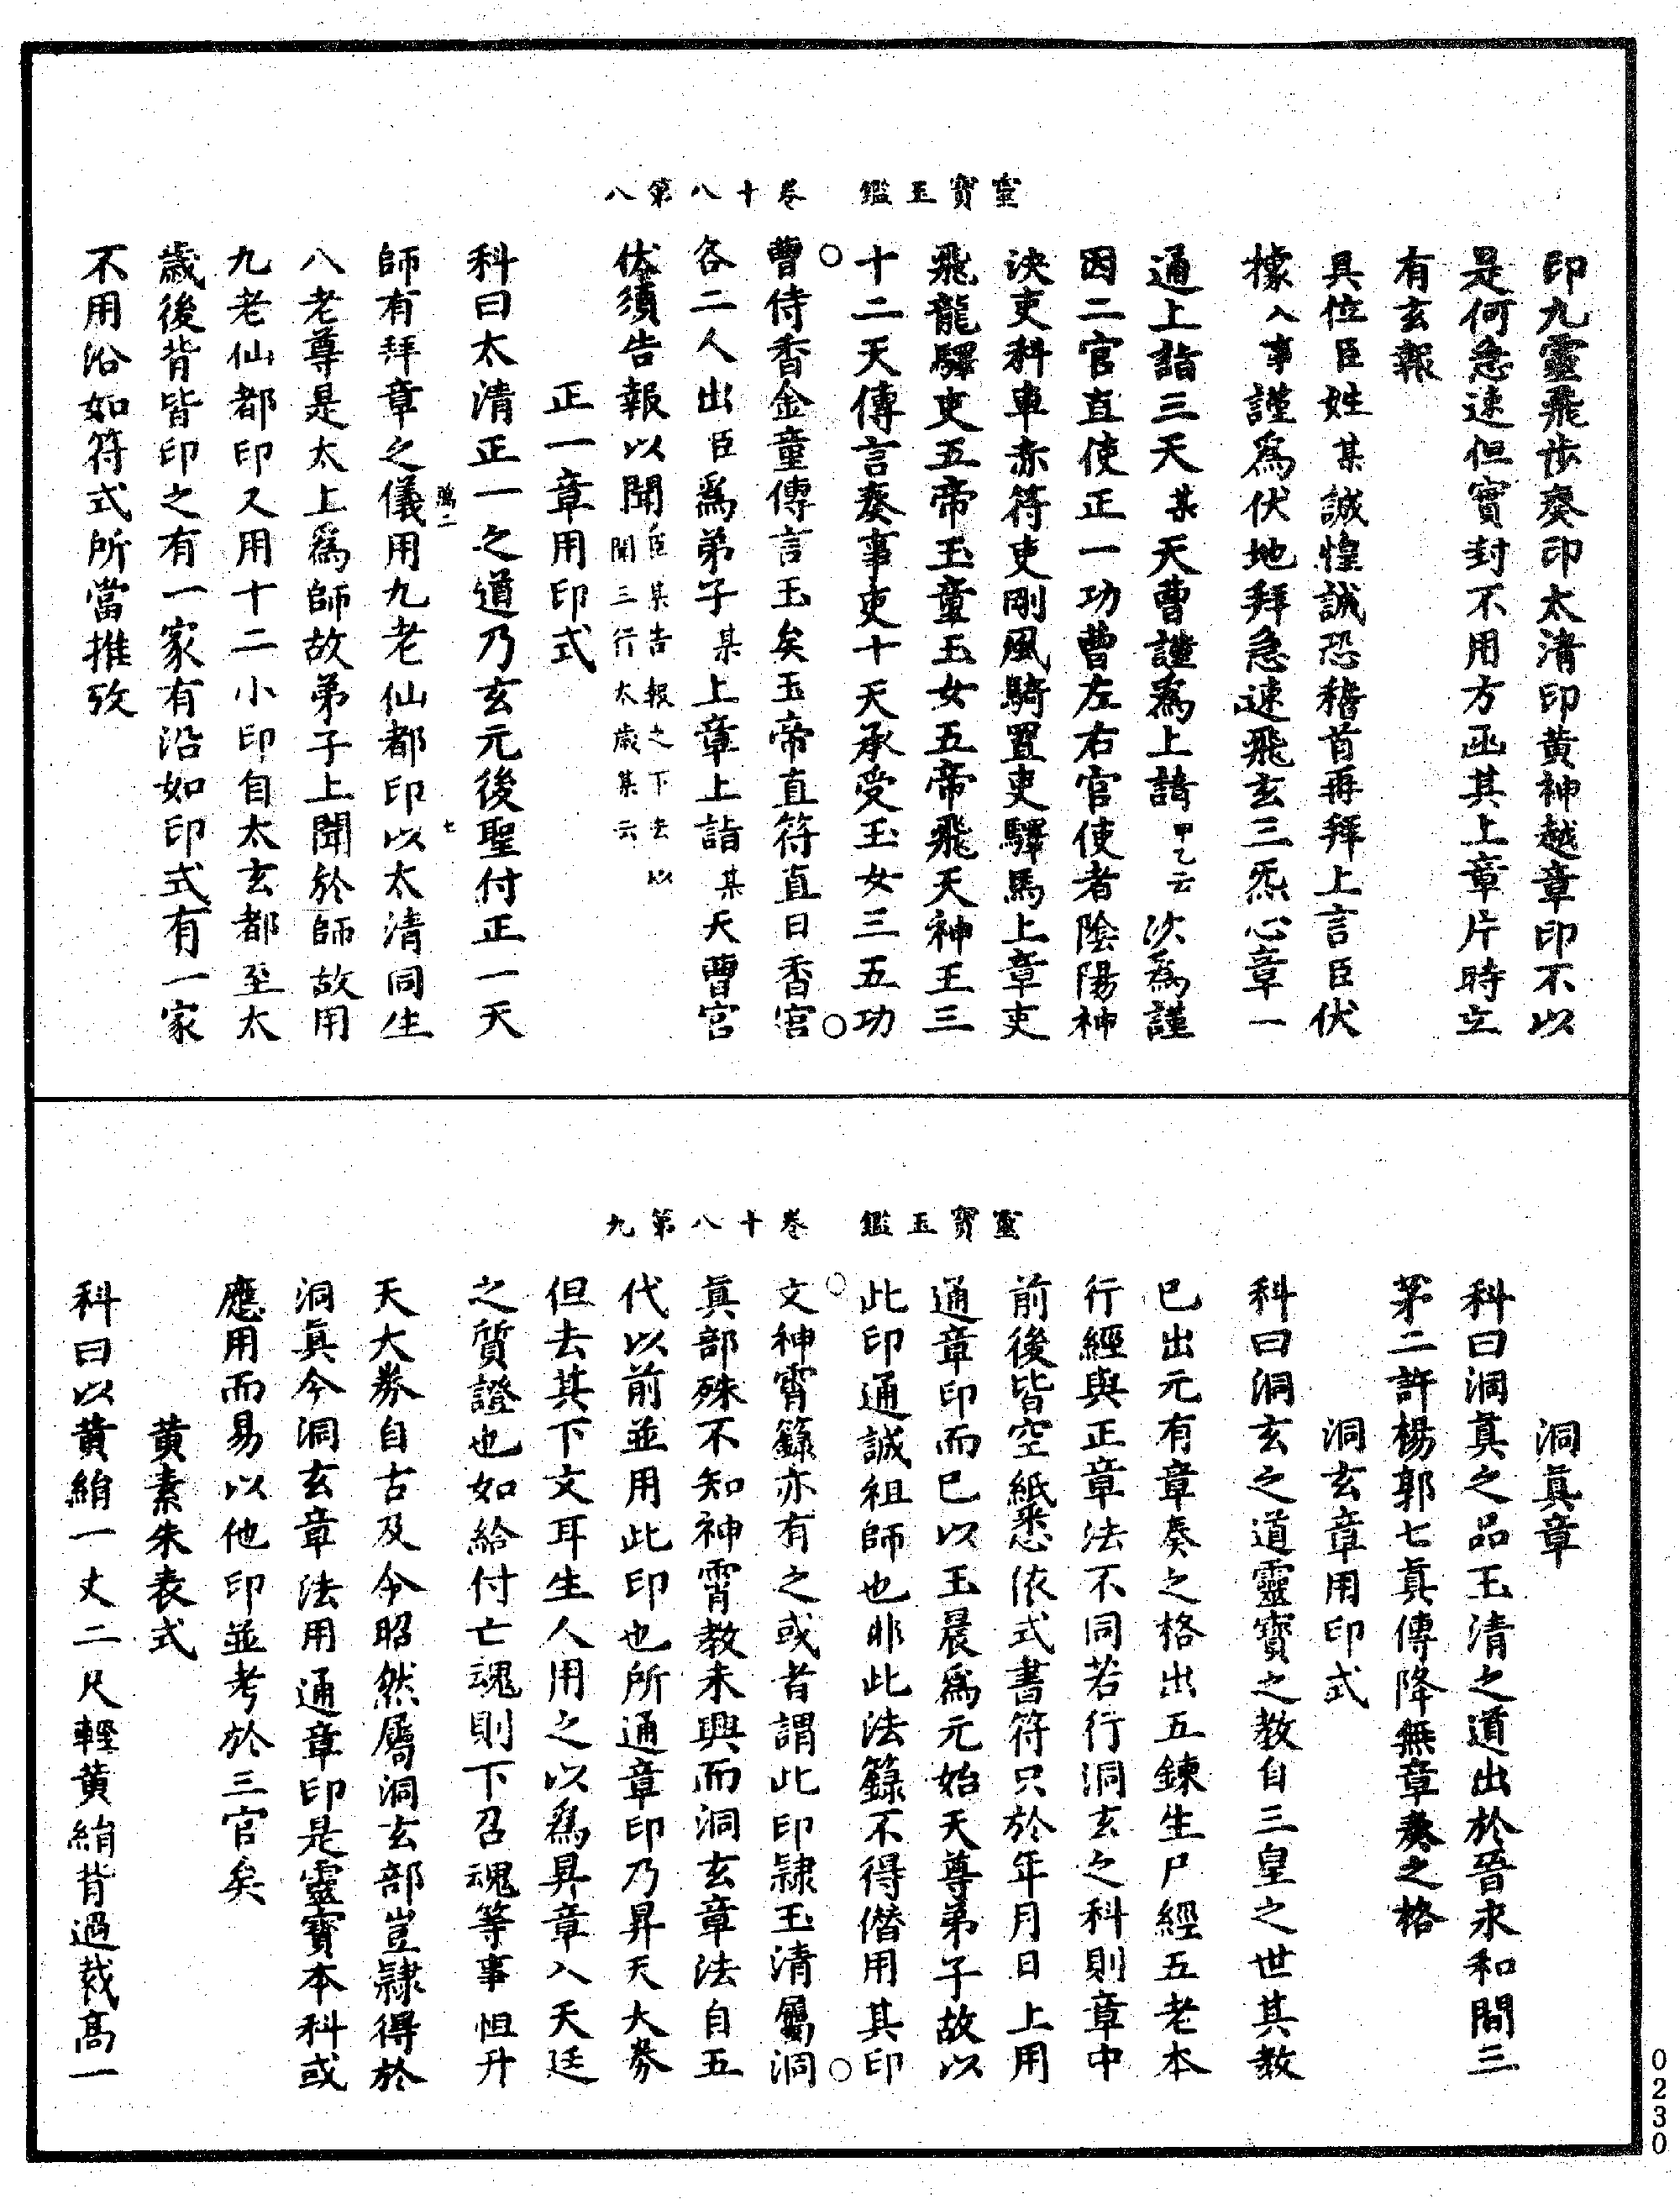 靈寶玉鑑　卷十八第八
印九靈飛步奏印太清印黃神越章印不以
是何急速但實封不用方函其上章片時立
有玄報
具位臣姓某誠惶誠恐稽首再拜上言臣伏
據入事謹爲伏地拜急速飛玄三炁心章一
通上詣三天某天曹謹爲上請甲乙云次爲謹
因二官直使正一功曹左右官使者陰陽神
決吏科車赤符吏剛風騎置吏驛馬上章吏
飛龍驛吏五帝玉童玉女五帝飛天神王三
十二天傳言奏事吏十天承受玉女三五功
曹侍香金童傳言玉矣玉帝直符直日香官
各二人出臣爲弟子某上章上詣某天曹宮
伏須告報以聞臣某告報之下去以
聞三行太歲某云
正一章用印式
科曰太清正一之道乃玄元後聖付正一天
師有拜章之儀用九老仙都印以太清同生
八老尊是太上爲師故弟子上聞於師故用
九老仙都印又用十二小印自太玄都至太
歲後背皆印之有一家有沿如印式有一家
不用沿如符式所當推攷
靈寶玉鑑　卷十八第九
洞眞章
科曰洞眞之品玉清之道出於晉永和間三
茅二許楊郭七眞傳降無章奏之格
洞玄章用印式
科曰洞玄之道靈寶之教自三皇之世其教
已出元有章奏之格出五鍊生尸經五老本
行經與正章法不同若行洞玄之科則章中
前後皆空紙悉依式書符只於年月日上用
通章印而已以玉晨爲元始天尊弟子故以
此印通誠祖師也非此法籙不得僭用其印
文神霄籙亦有之或者謂此印隷玉清屬洞
眞部殊不知神霄教未興而洞玄章法自五
代以前並用此印也所通章印乃昇天大券
但去其下文耳生人用之以爲昇章入天廷
之質證也如給付亡魂則下召魂等事恒升
天大券自古及今昭然屬洞玄部豈隷得於
洞眞今洞玄章法用通章印是靈寶本科或
應用而易以他印並考於三官矣
黃素朱表式
科曰以黃絹一丈二尺輕黃絹背過裁高一
0230